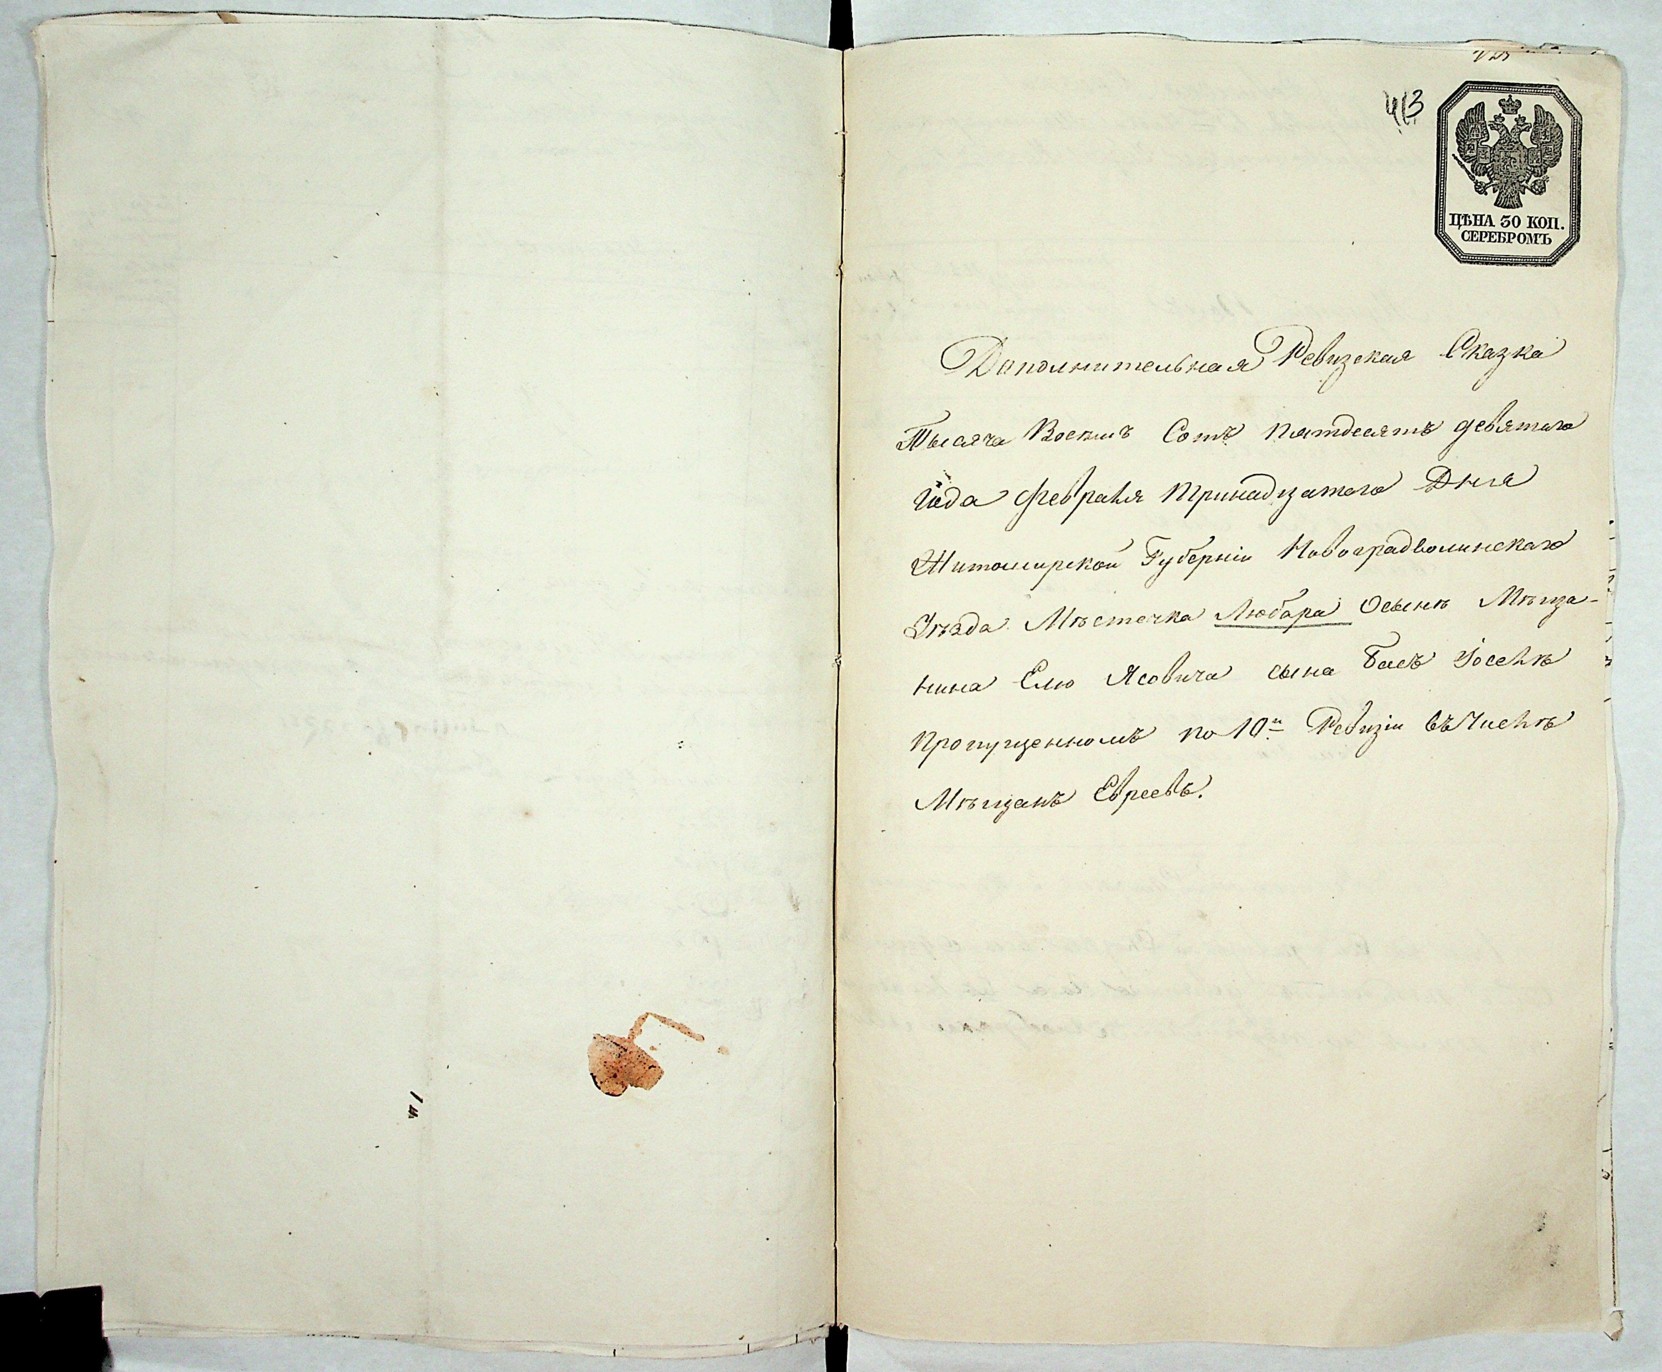 413
ЦѢНА 30 КОП.
СЕРЕБРОМЪ
Дополнительная Ревизская Сказка
Тысяча Восемъ Сотъ Пятдесятъ девятого
Года Февраля Тринадцатого Дня
Житомирской Губерніи Новоградволинскаго
Уѣзда Мѣстечка Любара Осынѣ Мѣща-
нина Елю Ясовича сына Басъ Іоселѣ
Пропущенномъ по 10й Ревизіи въ Числѣ
Мѣщанъ Евреевъ.